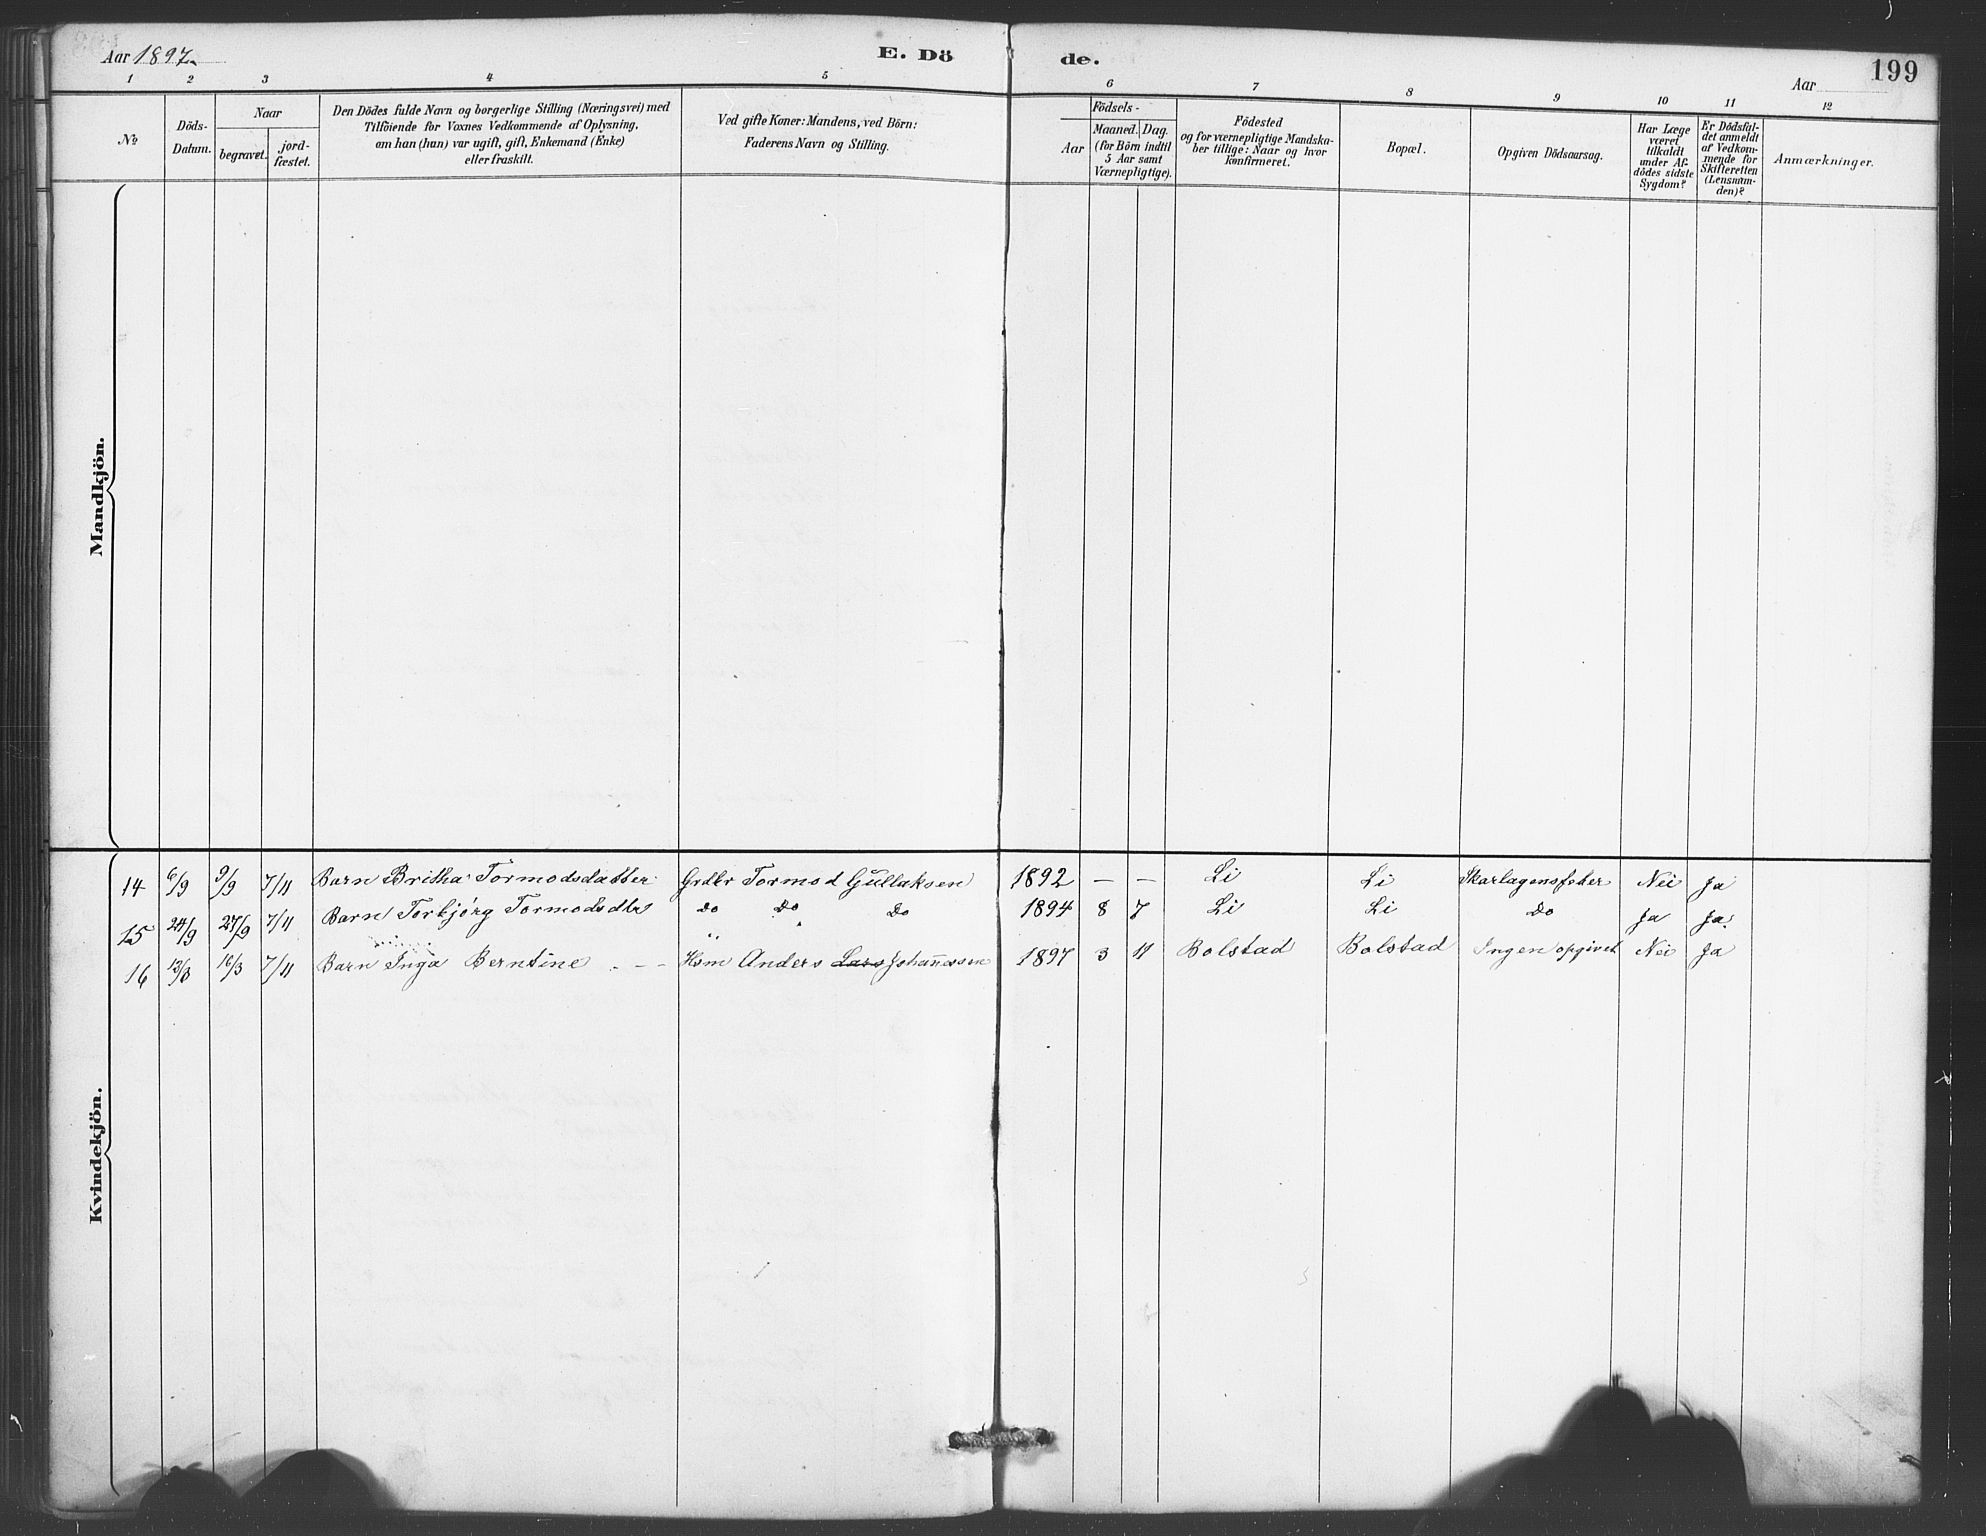 Aar 1897.
E. Dö
de.
Aar
199
1 2 3 4 5 6 7 8 9 10 11 12
No
Döds-
Datum.
Naar
begravet.
jord-
fæstet.
Den Dödes fulde Navn og borgerlige Stilling (Næringsvei) med
Tilföiende for Voxnes Vedkommende af Oplysning,
om han (hun) var ugift, gift, Enkemand (Enke)
eller fraskilt.
Ved gifte Koner: Mandens, ved Börn:
Faderens Navn og Stilling.
Födsels-
Aar
Maaned. Dag.
(for Börn indtil
5 Aar samt
Værnepligtige).
Födested
og for værnepligtige Mandska-
ber tillige: Naar og hvor
konfirmeret.
Bopæl.
Opgiven Dödsaarsag.
Har Læge
været
tilkaldt
under Af-
dödes sidste
Sygdom?
Er Dödsfal-
det anmeldt
af Vedkom-
mende for
Skifteretten
(Lensman-
den)?
Anmærkninger.
Mandkjön.
Kvindekjön.
14 6/9 9/9 7/11 Barn Britha Tormodsdatter Grdbr Tormod Gullaksen 1892 — — Li Li Skarlagensfeber Nei Ja
15 24/9 27/9 7/11 Barn Torbjörg Tormodsdtr Do Do Do 1894 8 7 Li Li Do Ja Ja
16 13/8 16/3 7/11 Barn Inga Berntine — Hsm Anders Lars Johannessen 1897 3 11 Bolstad Bolstad Ingen opgivet Nei Ja